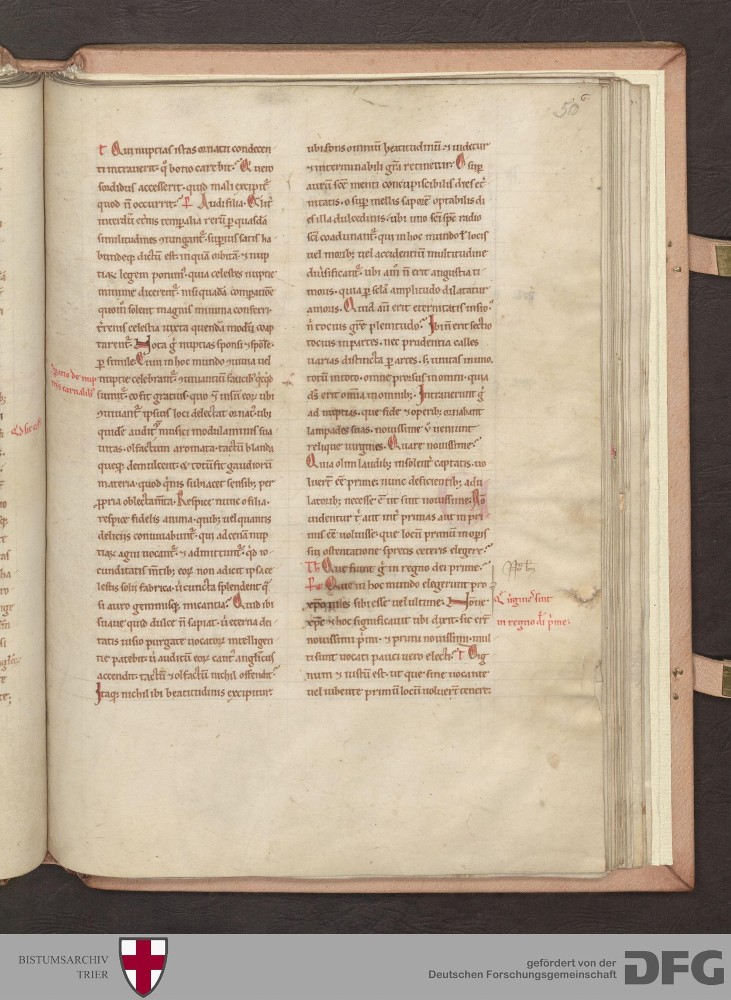 50
t Qui nuptias istas ornatu condecen
ti intrauerit. q̊ bono carebit. Et uero
sordidus accesserit. quid mali excipiet̃
quod n̄ occurrit. P Audi filia.
interdū et̃nis temporalia rerū p quasdā
similitudines iungant̃. supernis satis ha
bundeq; dictū est. inquā orbitā. ⁊ nup
tiaꝝ legem ponim̃. quia celestes nuptie
minime dicerent̃. nisi quadā comparatiōe
quom̃ solent magnis minima conferri.
t̃renis celestia iuxta quendā modū coap
tarent̃. Nota g̃ nuptias sponsi ⁊ spōse.
p simile. Cum in hoc mundo
nuptie celebrant̃.
sumit̃. eo fit gratius. quo
⁊ iuuant̃ ipsius loci delectat ornat̃. ubi
quidē auditū musici modulaminis sua
uitas. olfactum aromata. tactū blanda
queq; demulcent. ⁊ totū fit gaudiorū
materia. quod q̃nis subiacet sensib; per
ppria oblectam̃ta. Respice nunc o filia.
respice fidelis anima. quib; uel quantis
deliciis conuiuabunt̃. qui ad cenā nup
tiaꝝ agni uocant̃. ⁊ admittunt̃. q̊d io
cunditatis m̃tib; eoꝝ non adicit ipsa ce
lestis solii fabrica. ū cuncta splendent q̃
si auro gemmisq; micantia. Quid ibi
suaue quid dulce n̄ sapiat. ū eterna dei
tatis uisio purgate uocatoꝝ intelligen
tie patebit. ū auditū eoꝝ cant̃ anglicus
accendit. tactū ⁊ olfactū nichil offendit.
Itaq; nichil ibi beatitudinis excipitur.
ubi fons omniū beatitudinū ⁊ uidetur
⁊ interminabili gr̃a retinetur. O sup
aurū sc̃e menti concupiscibilis dies et̃
nitatis. o sup mellis saporē optabilis di
es illa dulcedinis. ubi uno sc̃i spc̃ radio
sc̃i coadunant̃. qui in hoc mundo ł locis
uel morib; uel accidentiū multitudine
diuisificant̃. ubi am̃ n̄ erit angustia ti
moris. quia p scl̃a amplitudo dilatatur
amoris. Quid aut̄ erit eternitatis uisio.
n̄ tocius gr̃e plenitudo. Ibi n̄ erit sectio
tocius in partes. nec prudentia calles
uarias distincta p artes. s; unitas in uno.
totū in toto. omne prorsus in omni. quia
ds̃ erit omnia in omnib;. Intrauerunt g̃
ad nuptias. que fide ⁊ operib; ornabant
lampades suas. nouissime ū uenerunt
relique uirgines. Quare nouissime.
Quia olim laudib; insolent̃ captatis. uo
luerт̃ ee prime. nunc deficientib; adu
latorib; necesse ē ut sint nouissime. Nō
uidentur t̃ aut int̃ primas aut in pri
mis eē uoluisse. que locū primū in opis
sui ostentatione spretis ceteris elegere.
Th Que sunt g̃ in regno dei prime.
P Que in hoc mundo elegerunt pro
xp̃o uiles sibi esse uel ultime. Nonne
xp̃c ⁊ hoc significauit ubi dixit. sic er̃t
nouissimi p̃mi. ⁊ primi nouissimi. mul
ti sunt uocati pauci uero electi. t Dig
num ⁊ iustū est. ut que sine uocante
uel iubente primū locū uoluer̃t tenere.
in regno d̃i p̃me.
BISTUMSARCHIV
TRIER
gefördert von der
Deutschen Forschungsgemeinschaft
DFG